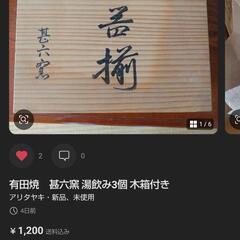 揃
甚六窯
1/6
2
0
有田焼　甚六窯 湯飲み3個 木箱付き
アリタヤキ・新品、未使用
4日前
¥1,200 送料込み